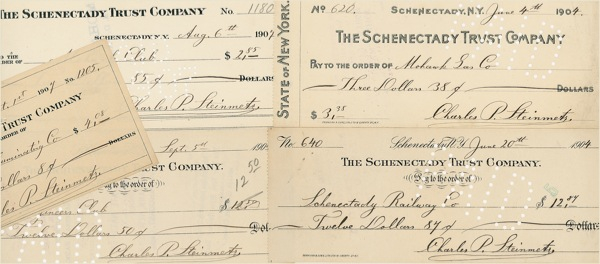 THE SCHENECTADY TRUST COMPANY No. 1180
SCHENECTADY, N.Y. Aug. 6th 1907
TO THE
ORDER OF Club $ 2,85
85 ¢ DOLLARS
Charles P. Steinmetz
STATE OF NEW YORK.
No 620. SCHENECTADY, N.Y. June 4th 1904.
THE SCHENECTADY TRUST COMPANY
PAY TO THE ORDER OF Mohawk Gas Co
Three Dollars 38 ¢ DOLLARS
$ 3,38 Charles P. Steinmetz
1st 1907 No. 1105.
TRUST COMPANY
ORDER OF
Co $ 4,08
Dollars 8 ¢ DOLLARS
Charles P. Steinmetz
Sept. 5th 190
TRUST COMPANY.
Pay to the order of
12 50
Club $
Twelve Dollars 50 ¢ Dol
Charles P. Steinmetz
No. 640 Schenectady, N.Y. June 20th 1904
THE SCHENECTADY TRUST COMPANY.
Pay to the order of
Schenectady Railway Co $ 12,87
Twelve Dollars 87 ¢ Dollars
Charles P. Steinmetz